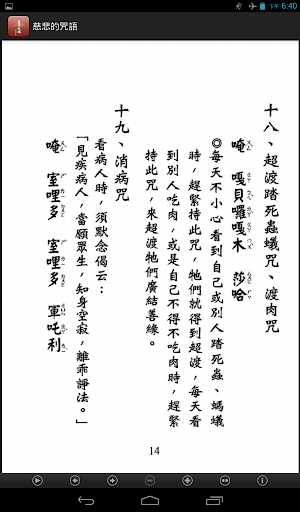 下午 6:40
慈悲的咒語
十八、超渡踏死蟲蟻咒、渡肉咒
唵 嘎貝囉嘎木 莎哈
◎每天不小心看到自己或別人踏死蟲、螞蟻
時，趕緊持此咒，牠們就得到超渡，每天看
到別人吃肉，或是自己不得不吃肉時，趕緊
持此咒，來超渡牠們廣結善緣。
十九、消病咒
看病人時，須默念偈云：
「見疾病人，當願眾生，知身空寂，離乖諍法。」
唵 室哩多 室哩多 軍吒利
14